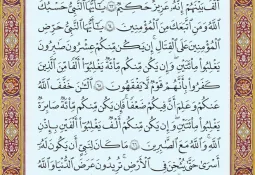 أَلَّفَ بَيْنَهُمْ إِنَّهُۥ عَزِيزٌ حَكِيمٌ ٦٣ يَٰٓأَيُّهَا ٱلنَّبِىُّ حَسْبُكَ
ٱللَّهُ وَمَنِ ٱتَّبَعَكَ مِنَ ٱلْمُؤْمِنِينَ ٦٤ يَٰٓأَيُّهَا ٱلنَّبِىُّ حَرِّضِ
ٱلْمُؤْمِنِينَ عَلَى ٱلْقِتَالِ إِن يَكُن مِّنكُمْ عِشْرُونَ صَٰبِرُونَ
يَغْلِبُوا۟ مِا۟ئَتَيْنِ وَإِن يَكُن مِّنكُم مِّا۟ئَةٌ يَغْلِبُوٓا۟ أَلْفًا مِّنَ ٱلَّذِينَ
كَفَرُوا۟ بِأَنَّهُمْ قَوْمٌ لَّا يَفْقَهُونَ ٦٥ ٱلْـَٰٔنَ خَفَّفَ ٱللَّهُ
عَنكُمْ وَعَلِمَ أَنَّ فِيكُمْ ضَعْفًا فَإِن يَكُن مِّنكُم مِّا۟ئَةٌ صَابِرَةٌ
يَغْلِبُوا۟ مِا۟ئَتَيْنِ وَإِن يَكُن مِّنكُمْ أَلْفٌ يَغْلِبُوٓا۟ أَلْفَيْنِ بِإِذْنِ
ٱللَّهِ وَٱللَّهُ مَعَ ٱلصَّٰبِرِينَ ٦٦ مَا كَانَ لِنَبِىٍّ أَن يَكُونَ لَهُۥٓ
أَسْرَىٰ حَتَّىٰ يُثْخِنَ فِى ٱلْأَرْضِ تُرِيدُونَ عَرَضَ ٱلدُّنْيَا وَٱللَّهُ